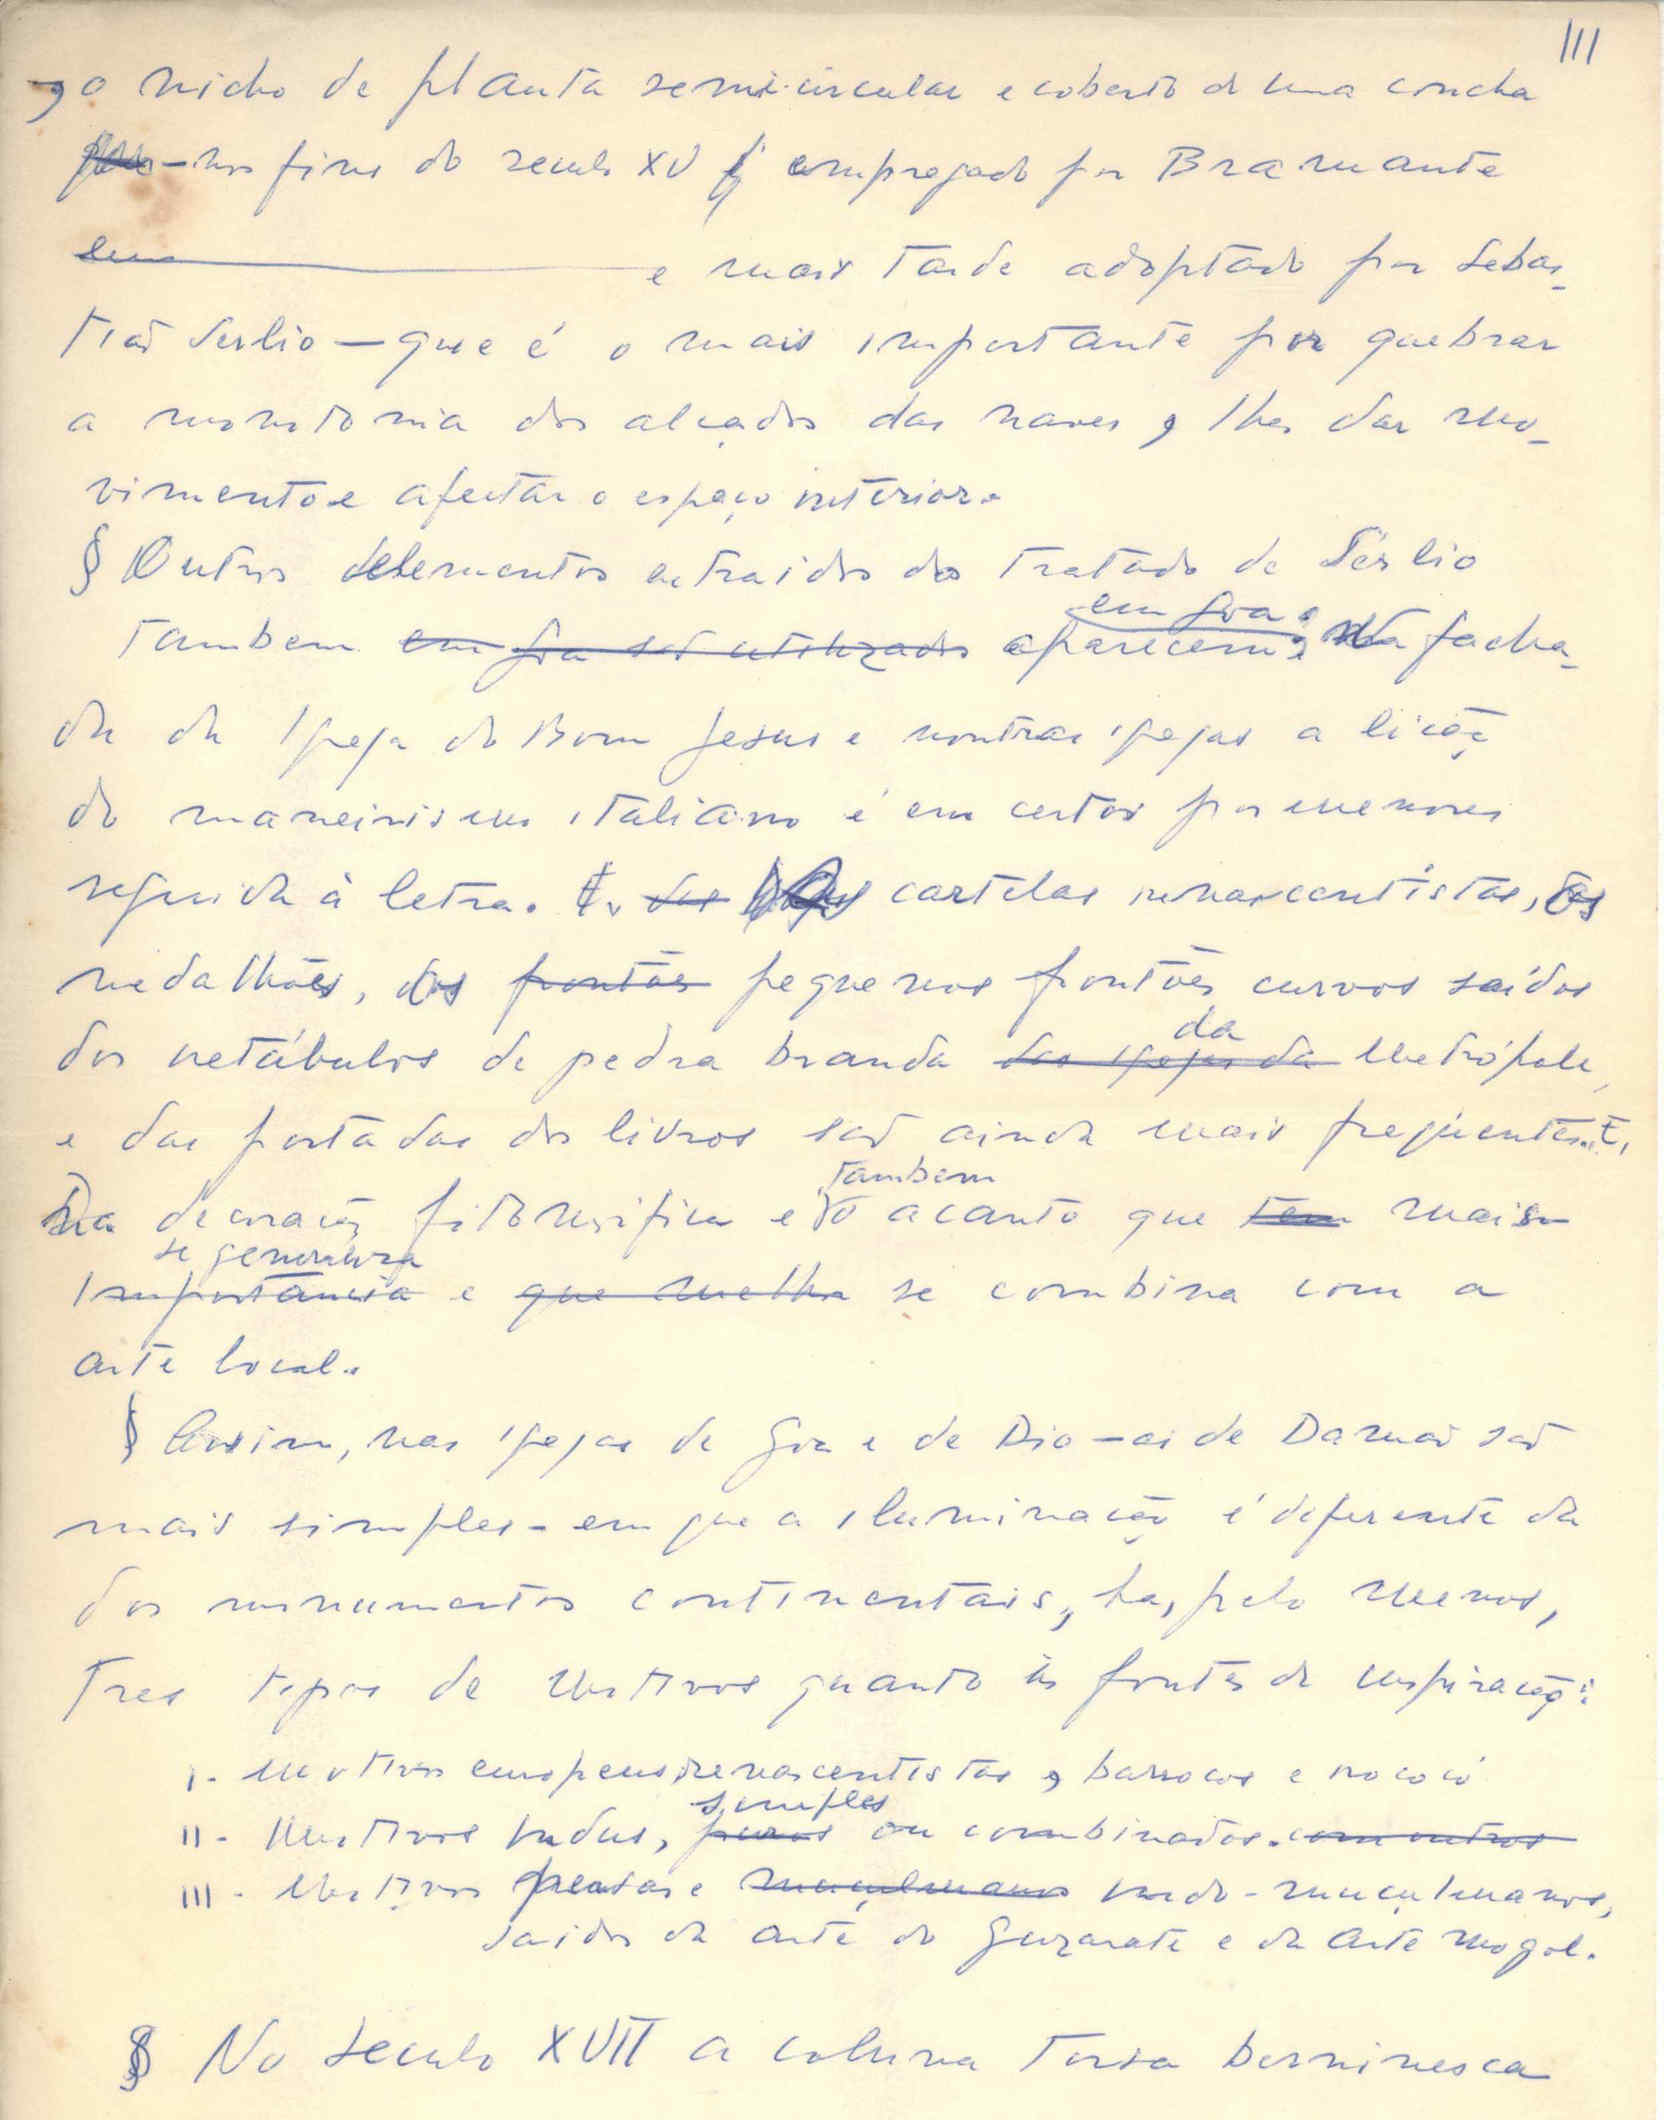 III
, o nicho de planta semi-circular e coberto de uma concha
- nos fins do seculo XV é empregado por Bramante
em e mais tarde adoptado por Sebas-
tião Serlio — que é o mais importante por quebrar
a monotonia dos alçados das naves, lhes dar mo-
vimento e afectar o espaço interior.
§ Outros elementos extraidos do tratado de Sérlio
em Goa:
tambem em Goa são utilizados aparecem; na facha-
da da Igreja do Bom Jesus e noutras igrejas a lição
do maneirismo italiano é em certos pormenores
seguida à letra. cartelas renascentistas, os
medalhões, os frontões pequenos frontões curvos saídos
da
dos retábulos de pedra branda das igrejas da Metrópole,
e das portadas dos livros são ainda mais freqüentes. E,
tambem
na decoração fitomórfica e o acanto que tem mais
se generaliza
importância e que melhor se combina com a
arte local.
§ Assim, nas igrejas de Goa e de Dio — as de Damão são
mais simples - em que a iluminação é diferente da
dos monumentos continentais, ha, pelo menos,
tres tipos de motivos quanto às fontes de inspiração:
I - Motivos europeus, renascentistas, barrocos e rococó
simples
II - Motivos indus, puros ou combinados. com outros
III - Motivos persas e muçulmanos indo-muçulmanos,
saidos da arte do Guzarate e da arte mogol.
§ No seculo XVII a coluna torsa berninesca